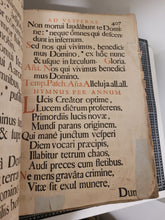 AD VESPERAS
407
Non mortui laudabunt te Domi-
ne: neque omnes qui descen-
dunt in infernum.
Sed nos qui vivimus, benedici-
mus Domino, ex hoc nunc
& usque in sæculum. Gloria.
Aña. Nos qui vivimus benedici-
mus Domino.
Temp. Pasch. Aña. Alleluja. all. all.
HYMNUS PER ANNUM
Lucis Creator optime,
Lucem dierum proferens,
Primordiis lucis novæ,
Mundi parans originem.
Qui mane junctum vesperi
Diem vocari præcipis,
Illabitur tetrum chaos,
Audi preces cum fletibus.
Ne mens gravata crimine,
Vitæ sit exul munere,
Dum